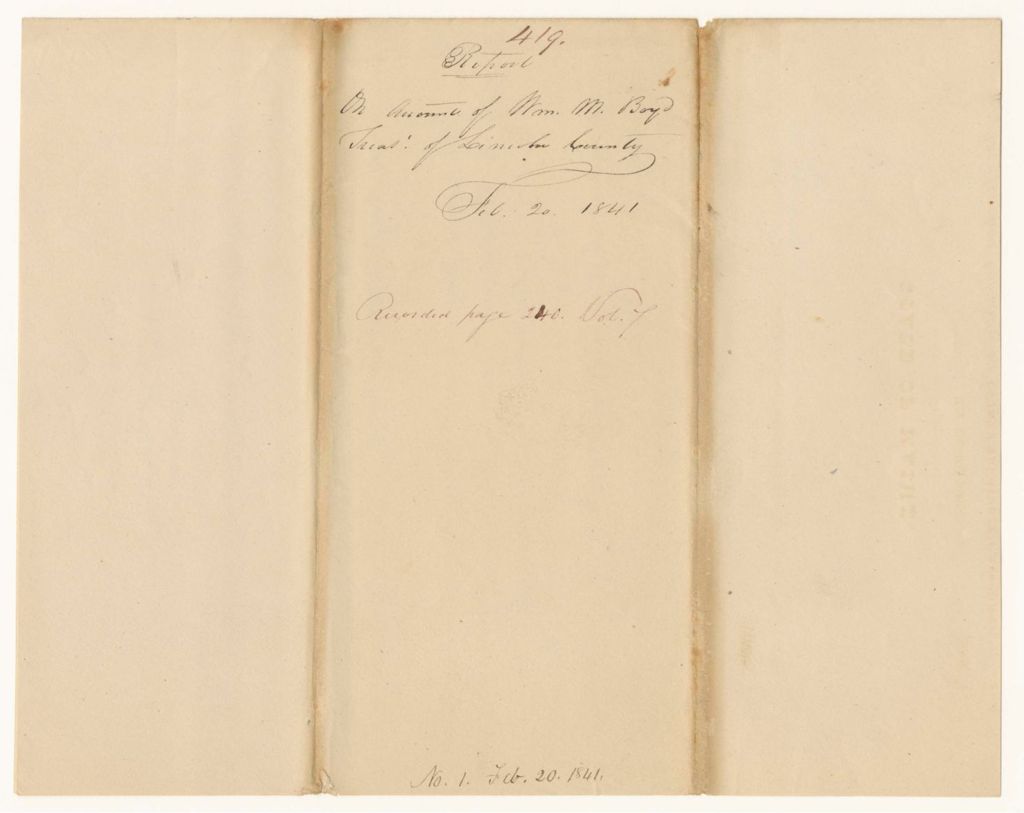 419.
Report
On Accounts of Wm. M. Boyd
Treas'. of Lincoln County
Feb. 20. 1841
Recorded page 240. Vol. 7
No. 1. Feb. 20. 1841.